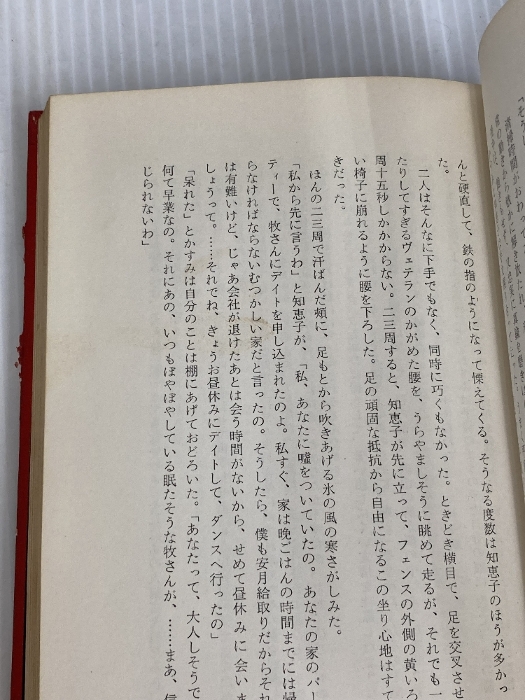 んと硬直して、鉄の指のようになって慄えてくる。そうなる度数は知恵子のほうが多かっ
た。
二人はそんなに下手でもなく、同時に巧くもなかった。ときどき横目で、足を交叉させ
たりしてすぎるヴェテランのかがめた腰を、うらやましそうに眺めて走るが、それでも一
周十五秒しかかからない。二三周すると、知恵子が先に立って、フェンスの外側の黄いろ
い椅子に崩れるように腰を下ろした。足の頑固な抵抗から自由になるこの坐り心地はすて
きだった。
ほんの二三周で汗ばんだ頬に、足もとから吹きあげる氷の風の寒さがしみた。
「私から先に言うわ」と知恵子が、「私、あなたに嘘をついていたの。あなたの家のパー
ティーで、牧さんにデイトを申し込まれたのよ。私すぐ、家は晩ごはんの時間までには帰
らなければならないむつかしい家だと言ったの。そうしたら、僕も安月給取りだからそれ
は有難いけど、じゃあ会社が退けたあとは会う時間がないから、せめて昼休みに会いま
しょうって。……それでね、きょうお昼休みにデイトして、ダンスへ行ったの」
「呆れた」とかすみは自分のことは棚にあげておどろいた。「あなたって、大人しそうで
何て早業なの。それにあの、いつもぼやぼやしている眠たそうな牧さんが、……まあ、信
じられないわ」